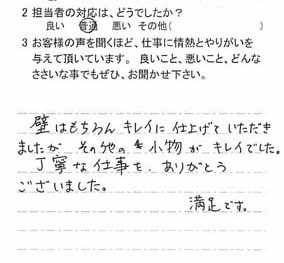 2 担当者の対応は、どうでしたか？
良い 普通 悪い その他(　　　)
3 お客様の声を聞くほど、仕事に情熱とやりがいを
与えて頂いています。良いこと、悪いこと、どんな
ささいな事でもぜひ、お聞かせ下さい。
壁はもちろん キレイに 仕上げて いただき
ましたが その他の 小物が キレイでした。
丁寧な仕事を、ありがとう
ございました。
満足です。